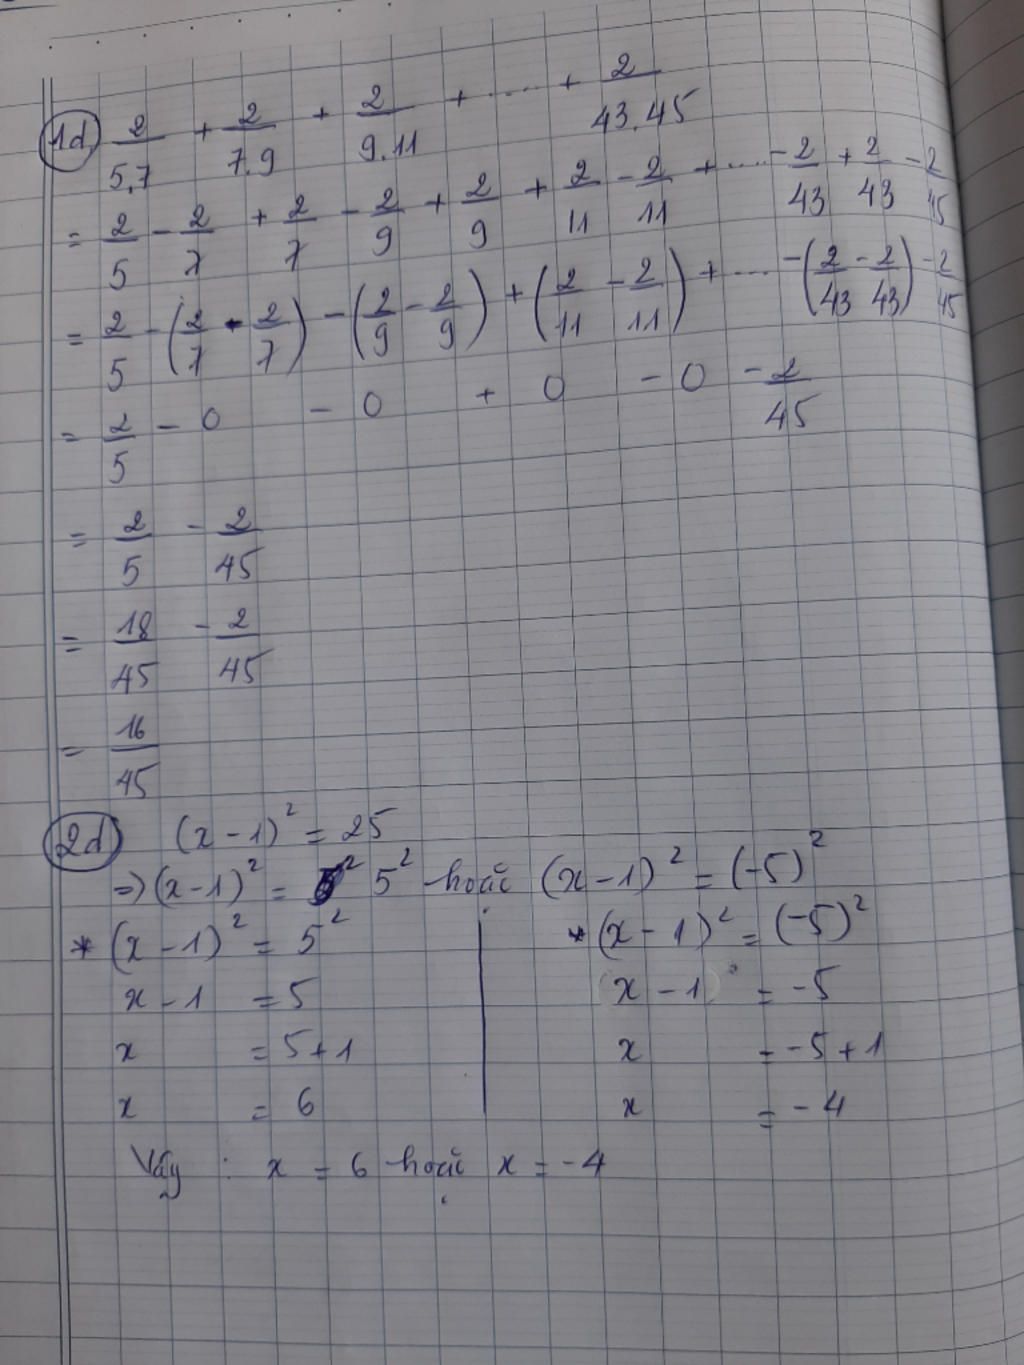 1d, 2/5.7 + 2/7.9 + 2/9.11 + ..... + 2/43.45
= 2/5 - 2/7 + 2/7 - 2/9 + 2/9 + 2/11 - 2/11 + .... - 2/43 + 2/43 - 2/45
= 2/5 - (2/7 - 2/7) - (2/9 - 2/9) + (2/11 - 2/11) + ... - (2/43 - 2/43) - 2/45
= 2/5 - 0 - 0 + 0 - 0 - 2/45
= 2/5 - 2/45
= 18/45 - 2/45
= 16/45
2d (x - 1)² = 25
=> (x - 1)² = 5² hoặc (x - 1)² = (-5)²
* (x - 1)² = 5²
x - 1 = 5
x = 5 + 1
x = 6
* (x - 1)² = (-5)²
x - 1 = -5
x = -5 + 1
x = -4
Vậy : x = 6 hoặc x = -4